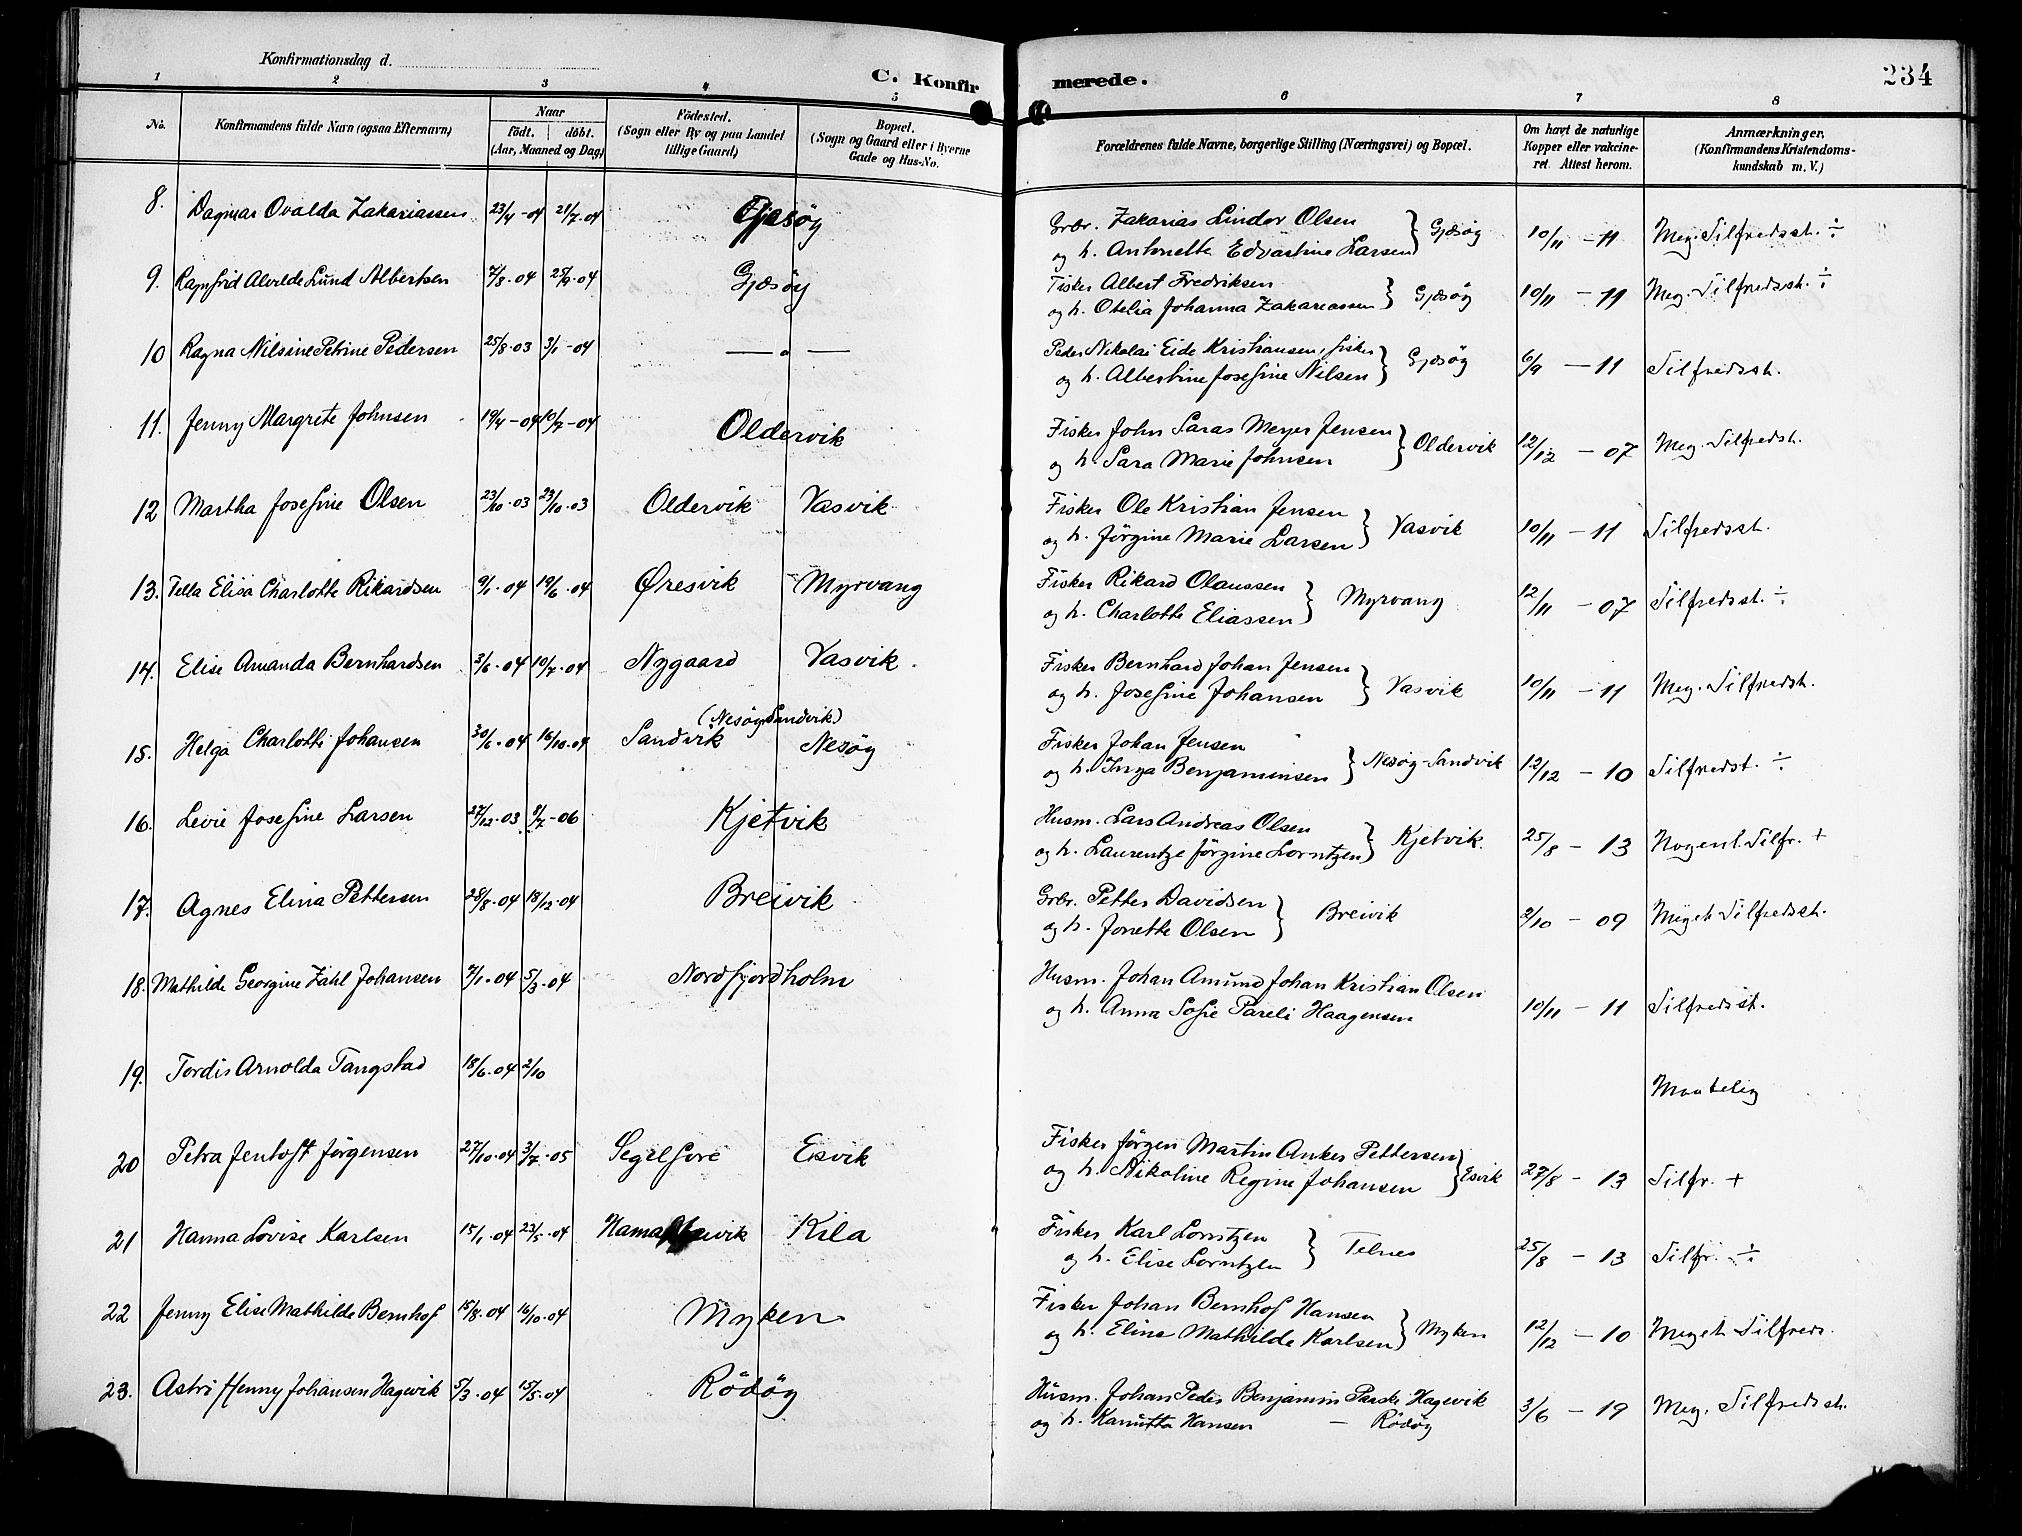 Konfirmationsdag d.
C. Konfirmerede.
234
1 2 3 4 5 6 7 8
No.
Konfirmandens fulde Navn (ogsaa Efternavn)
Naar
födt. döbt.
(Aar, Maaned og Dag)
Födested.
(Sogn eller By og paa Landet
tillige Gaard)
Bopæl.
(Sogn og Gaard eller i Byerne
Gade og Hus-No.
Forældrenes fulde Navne, borgerlige Stilling (Næringsvei) og Bopæl.
Om havt de naturlige
Kopper eller vakcine-
ret. Attest herom.
Anmærkninger,
(Konfirmandens Kristendoms-
kundskab m. V.)
8. Dagmar Ovalda Zakariassen 23/4-04 21/7.04 Gjæsöy Grbr. Zakarias Lindor Olsen
og h. Antonette Edvartine Larsen } Gjæsöy 10/11 - 11 Meg. Tilfredsst. ÷
9. Ragnfrid Alvilde Lund Albertsen 7/8.04 25/9.04 Gjæsöy Fisker Albert Fredriksen
og h. Otelia Johanna Zakariassen } Gjæsöy 10/11 - 11 Meg. Tilfredsst. ÷
10 Ragna Nilsine Petrine Pedersen 25/8.03 3/1-04 — " — Peder Nikolai Eide Kristiansen, fisker
og h. Albertine Josefine Nilsen } Gjæsöy 6/9 - 11 Tilfredsst.
11. Jenny Margrete Johnsen 19/4-04 10/7-04 Oldervik Fisker John Saras Meyer Jensen
og h. Sara Marie Johnsen } Oldervik 12/12 - 07 Meg. Tilfredst.
12 Martha Josefine Olsen 23/10.03 23/10.03 Oldervik Vasvik Fisker Ole Kristian Jensen
og h. Jörgine Marie Larsen } Vasvik 10/11 - 11 Tilfredsst.
13. Tella Elisa Charlotte Rikardsen 9/1.04 19/6.04 Øresvik Myrvang Fisker Rikard Olaussen
og h. Charlotte Eliassen } Myrvang 12/11 - 07 Tilfredsst. ÷
14. Elise Amanda Bernhardsen 3/6.04 10/7.04 Nygaard Vasvik. Fisker Bernhard Johan Jensen
og h. Josefine Johansen } Vasvik 10/11 - 11 Meg. Tilfredst.
15. Helga Charlotte Johansen 30/6.04 16/10.04 Sandvik (Nesöy Sandvik) Nesöy Fisker Johan Jensen
og h. Inga Benjaminsen } Nesöy-Sandvik 12/12 - 10 Tilfredst. ÷
16. Levie Josefine Larsen 27/12.03 8/7-06 Kjetvik Husm. Lars Andreas Olsen
og h. Laurentze Jörgine Lorntzen } Kjetvik. 25/8 - 13 Nogenl. Tilfr. +
17. Agnes Elina Pettersen 28/8.04 18/12.04 Breivik Grbr. Petter Davidsen
og h. Jonette Olsen } Breivik 2/10 - 09 Meget Tilfredsst.
18. Mathilde Georgine Zahl Johansen 7/1.04 5/3.04 Nordfjordholm Husm. Johan Amund Johan Kristian Olsen
og h. Anna Sofie Pareli Haagensen 10/11 - 11 Tilfredsst.
19. Tordis Arnolda Tangstad 18/6.04 2/10 Maatelig
20 Petra Jentoft Jörgensen 27/10.04 3/7.05 Segelfore Esvik Fisker Jörgen Martin Anker Pettersen
og h. Nikoline Regine Johansen } Esvik 27/8 - 13 Tilfr. +
21 Hanna Lovise Karlsen 15/1.04 23/5.04 Kila Fisker Karl Lorntzen
og h. Elise Lorntzen } Telnes 25/8 - 13 Tilfr. ÷
22 Jenny Elise Mathilde Bernhof 15/8.04 16/10.04 Myken Fisker Johan Bernhof Hansen
og h. Elina Mathilde Karlsen } Myken 12/12 - 10 Meget Tilfreds.
23. Astri Henny Johansen Hagevik 5/3.04 15/5.04 Rödöy Husm. Johan Peder Benjamin Parske Hagevik
og h. Kanutta Hansen — Rödöy 3/6 - 19 Meg. Tilfredsst.